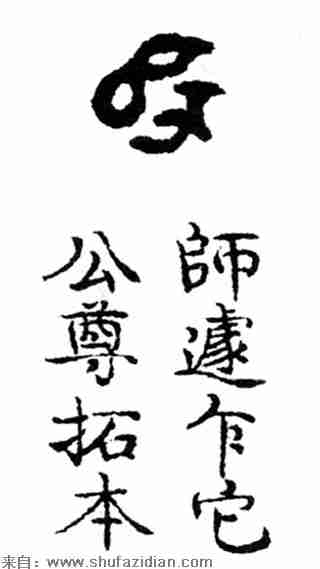 師遽乍它
公尊拓本
来自：www.shufazidian.com